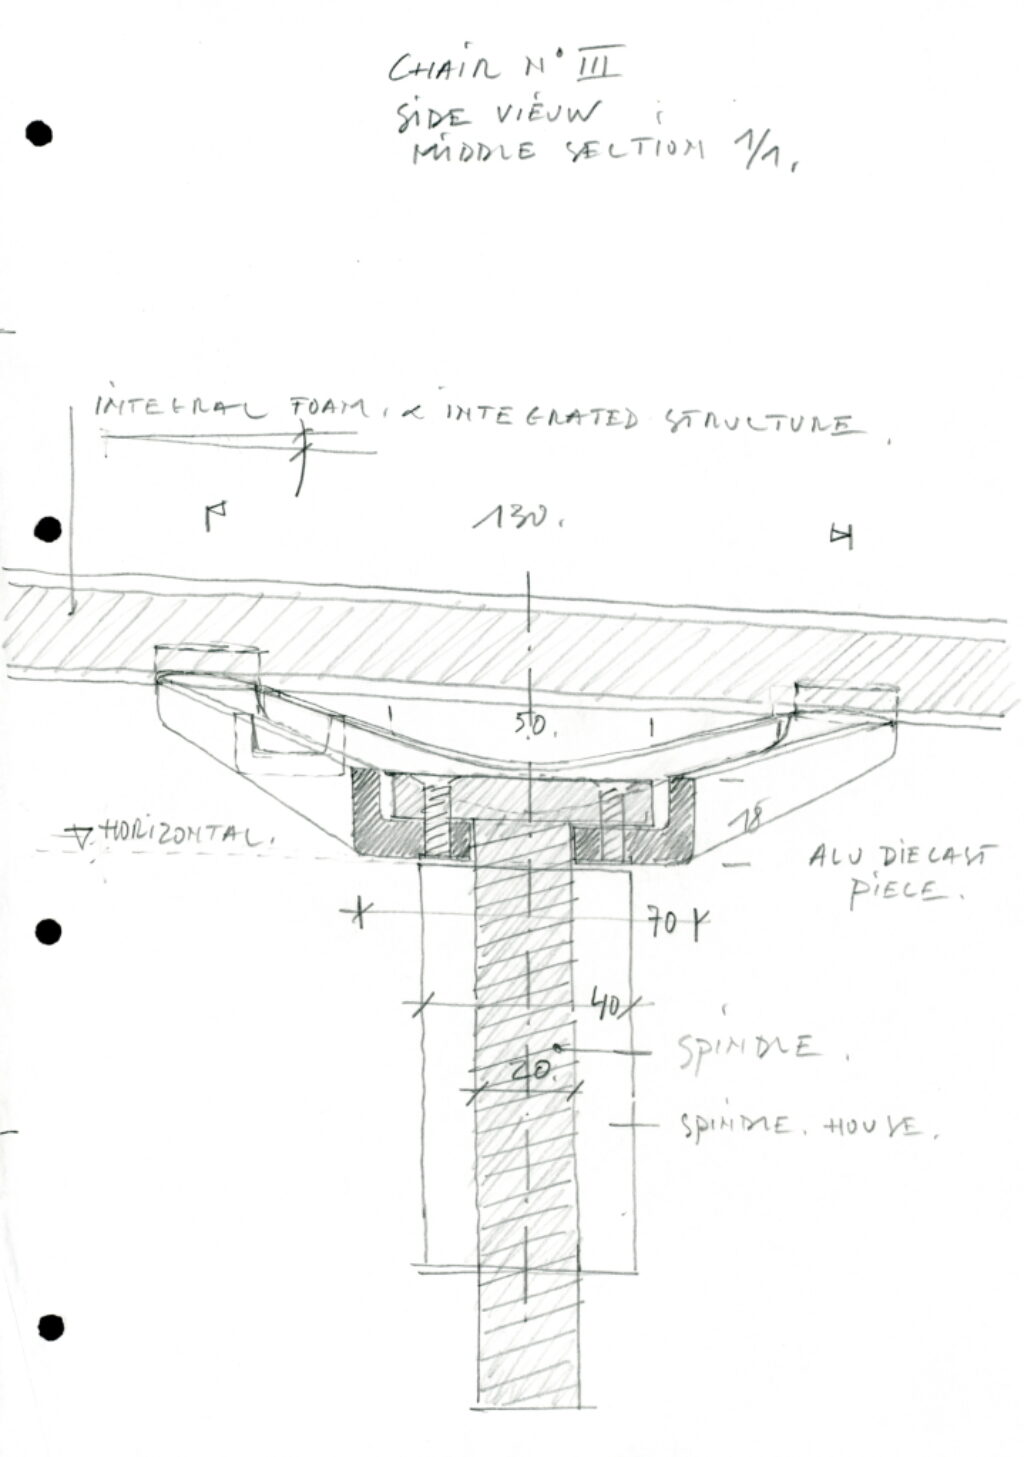 CHAIR N° III
SIDE VIEUW
MIDDLE SECTION 1/1.
INTEGRAL FOAM. & INTEGRATED STRUCTURE.
130.
50.
HORIZONTAL.
18
ALU DIECAST
PIECE.
70
40
SPINDLE.
20.
SPINDLE. HOUSE.